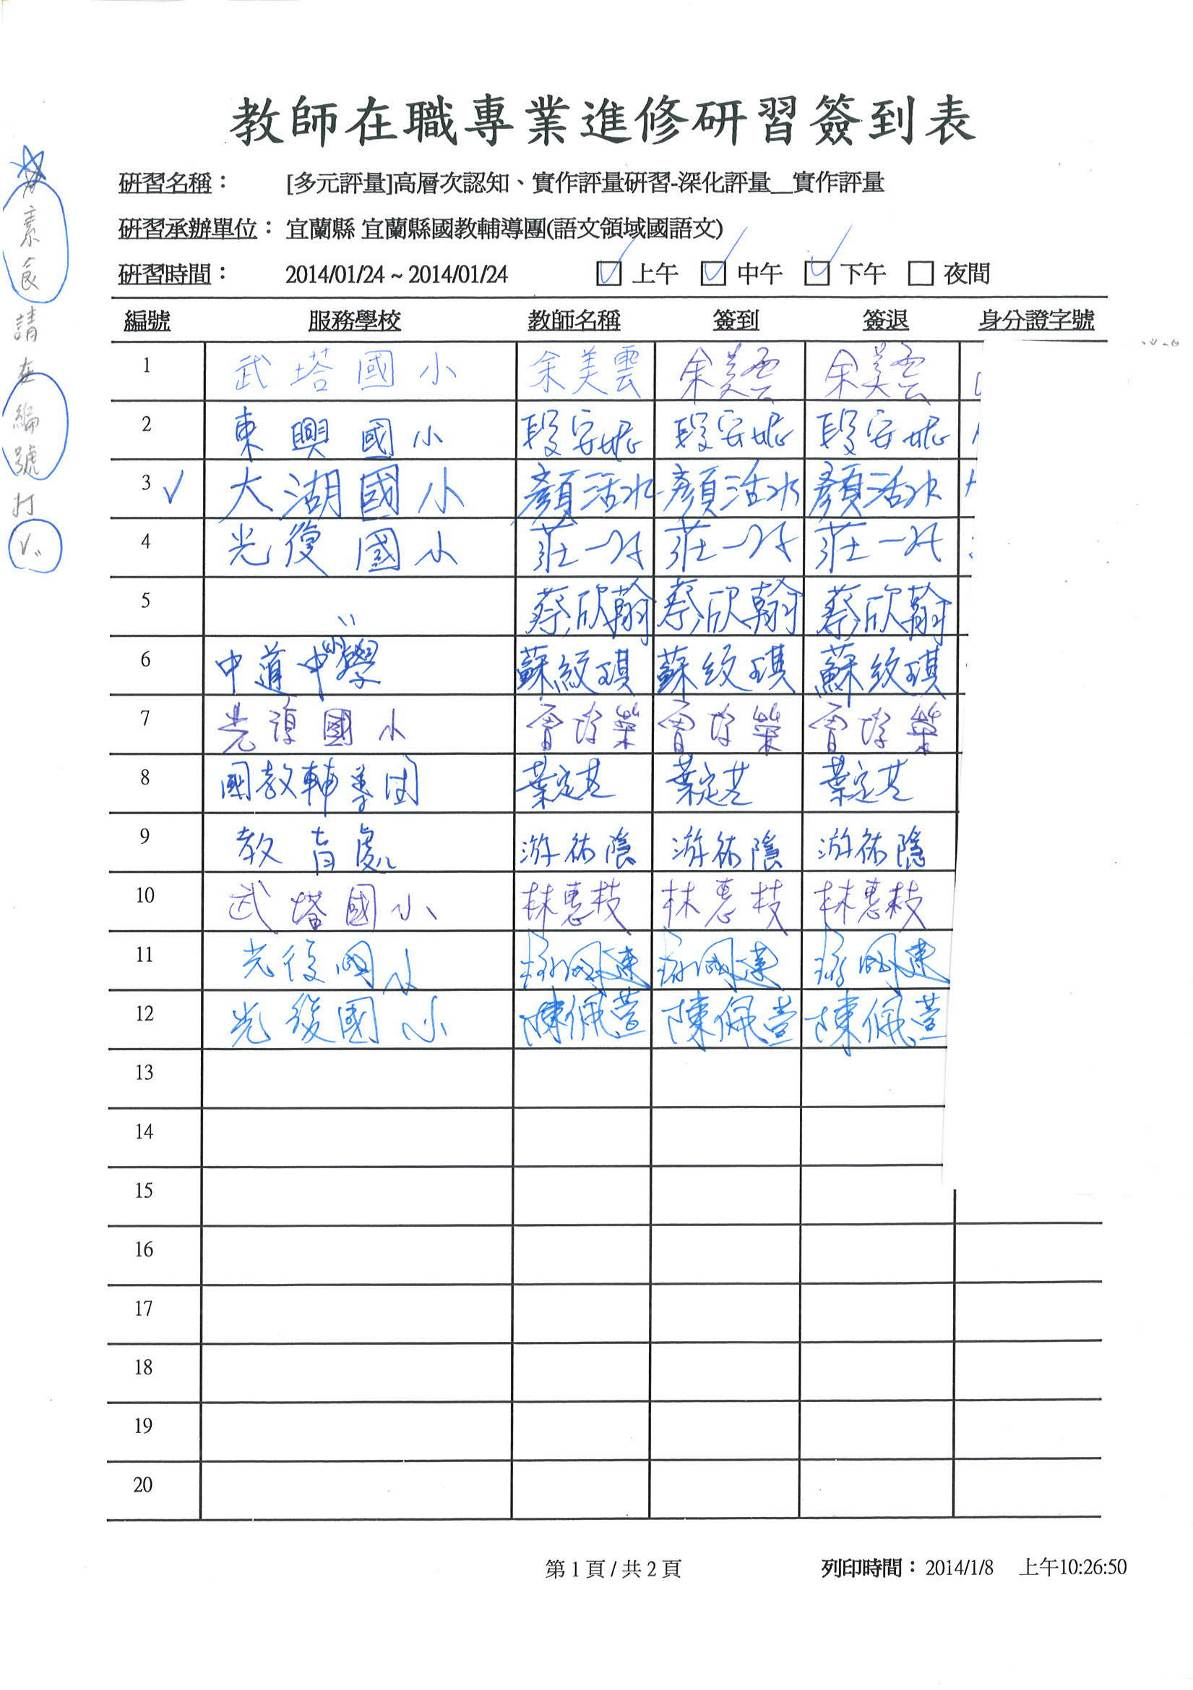 教師在職專業進修研習簽到表
研習名稱： [多元評量]高層次認知、實作評量研習-深化評量__實作評量
研習承辦單位： 宜蘭縣 宜蘭縣國教輔導團(語文領域國語文)
研習時間： 2014/01/24 ~ 2014/01/24 ☑ 上午 ☑ 中午 ☑ 下午 □ 夜間
素食請在編號打V
編號 服務學校 教師名稱 簽到 簽退 身分證字號
1 武塔國小 余美雲 余美雲 余美雲
2 東興國小 段安妮 段安妮 段安妮
3 ✓ 大湖國小 顏活水 顏活水 顏活水
4 光復國小 莊一 莊一 莊一
5 蔡欣翰 蔡欣翰 蔡欣翰
6 中道中學 蘇紋琪 蘇紋琪 蘇紋琪
7 光復國小 曾 榮 曾 榮 曾 榮
8 國教輔導團 葉定芷 葉定芷 葉定芷
9 教育處 游祐隱 游祐隱 游祐隱
10 武塔國小 林惠枝 林惠枝 林惠枝
11 光復國小
12 光復國小 陳佩萱 陳佩萱 陳佩萱
13
14
15
16
17
18
19
20
第 1 頁 / 共 2 頁 列印時間： 2014/1/8 上午10:26:50